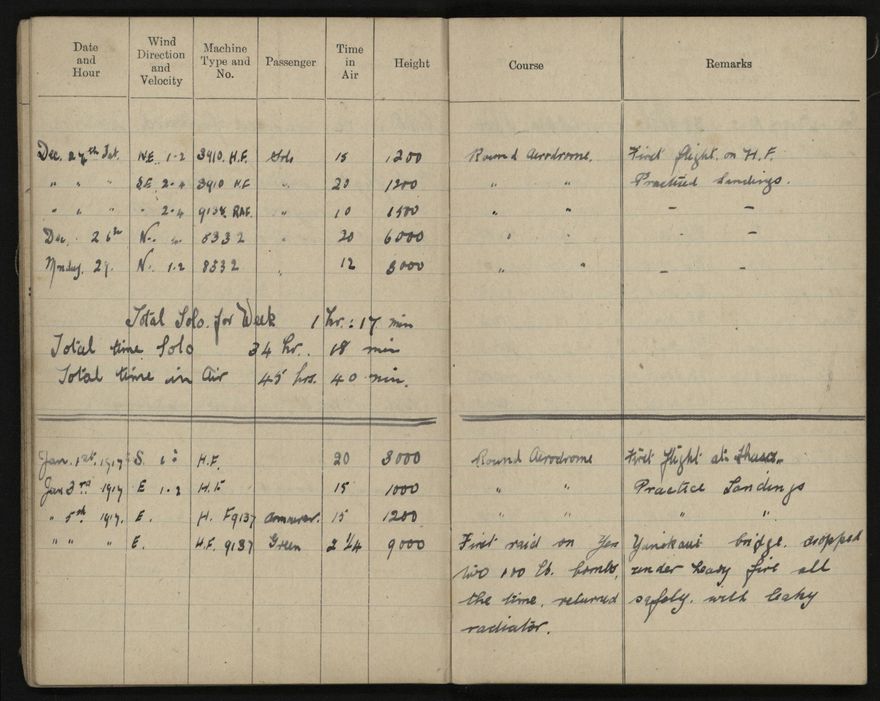 Date and Hour Wind Direction and Velocity Machine Type and No. Passenger Time in Air Height Course Remarks
Dec. 27th Sat. N.E. 1-2 3910. H.F. Solo 15 1200 Round Aerodrome. First flight. on H.F.
" " " S.E. 2-4 3910 H.F. " 20 1200 " " Practiced Landings.
" " " " 2-4 RAF. " 10 1500 " " - -
Dec. 26th N. " 8332 " 20 6000 " " -
Monday. 29. N. 1-2 8332 " 12 3000 " " - -
Total Solo. for Week 1 hr. : 17 min
Total time Solo 34 hr. 18 min
Total time in Air 45 hrs. 40 min.
Jan. 1st. 1917 S. H.F. 20 3000 Round Aerodrome First flight at
Jan 3rd 1917 E 1-2 H.F. 15 1000 " " Practice Landings
" 5th 1917. E. H. F9137 15 1200 " " " "
" " " E. H.F. 9137 Green 2 1/4 9000 First raid on Yen Yanikeui bridge. dropped
two 100 lb. bombs, under heavy fire all
the time. returned safely. with leaky
radiator.